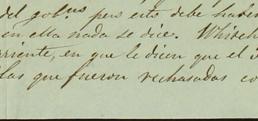 del gob.no pero esto debe haber
en ella nada se dice. Whiteh
rriente, en que le dicen que el
las que fueron rechasadas co